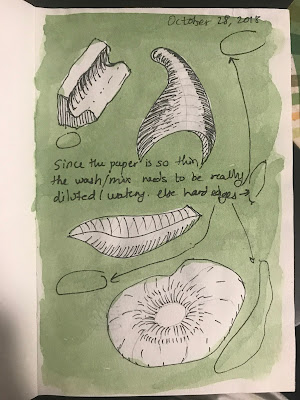 October 28, 2018
Since the paper is so thin,
the wash/mix needs to be really
diluted/watery. else hard edges →